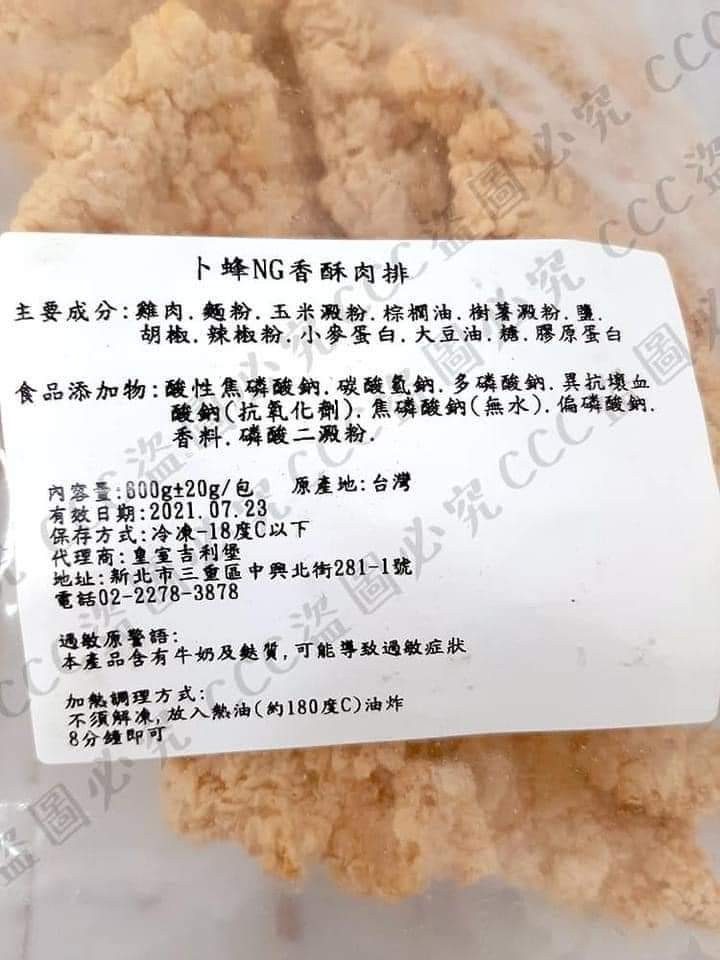 卜蜂NG香酥肉排
主要成分:雞肉.麵粉.玉米澱粉.棕櫚油.樹薯澱粉.鹽.
胡椒.辣椒粉.小麥蛋白.大豆油.糖.膠原蛋白
食品添加物:酸性焦磷酸鈉.碳酸氫鈉.多磷酸鈉.異抗壞血
酸鈉(抗氧化劑).焦磷酸鈉(無水).偏磷酸鈉.
香料.磷酸二澱粉.
內容量:600g±20g/包 原產地:台灣
有效日期:2021.07.23
保存方式:冷凍-18度C以下
代理商:皇室吉利堡
地址:新北市三重區中興北街281-1號
電話02-2278-3878
過敏原警語:
本產品含有牛奶及麩質,可能導致過敏症狀
加熱調理方式:
不須解凍,放入熱油(約180度C)油炸
8分鐘即可
CCC盜圖必究
CCC盜圖必究
CCC盜圖必究
CCC盜圖必究